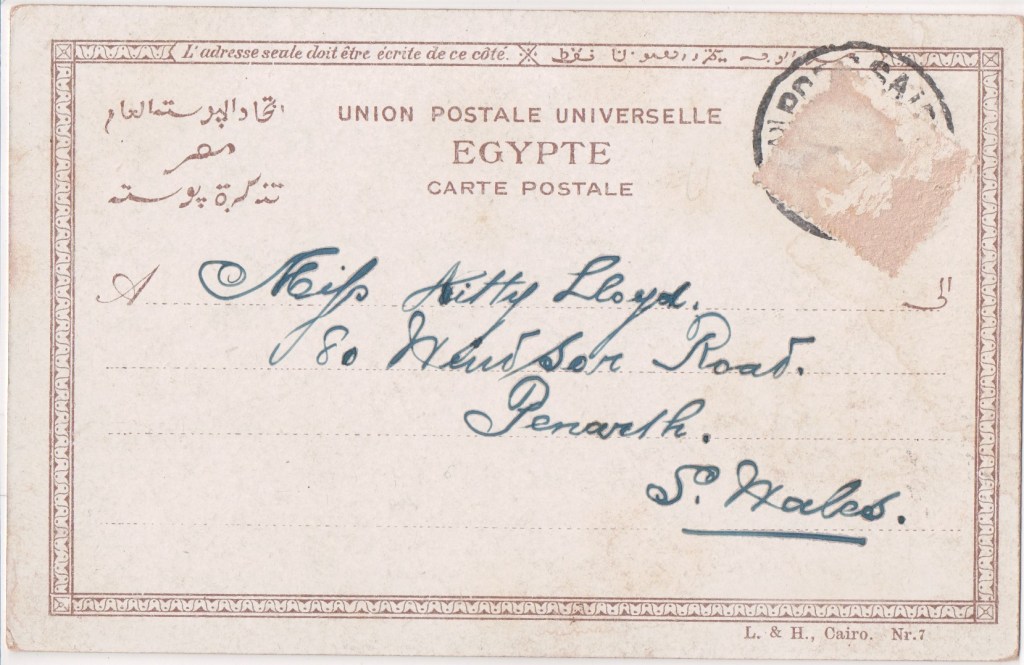 L'adresse seule doit être écrite de ce côté.
اتحاد البوسته العام
مصر
تذكرة بوسته
UNION POSTALE UNIVERSELLE
EGYPTE
CARTE POSTALE
PORT SAID
A
الى
Miss Kitty Lloyd.
80 Windsor Road.
Penarth.
S. Wales.
L. & H., Cairo. Nr.7